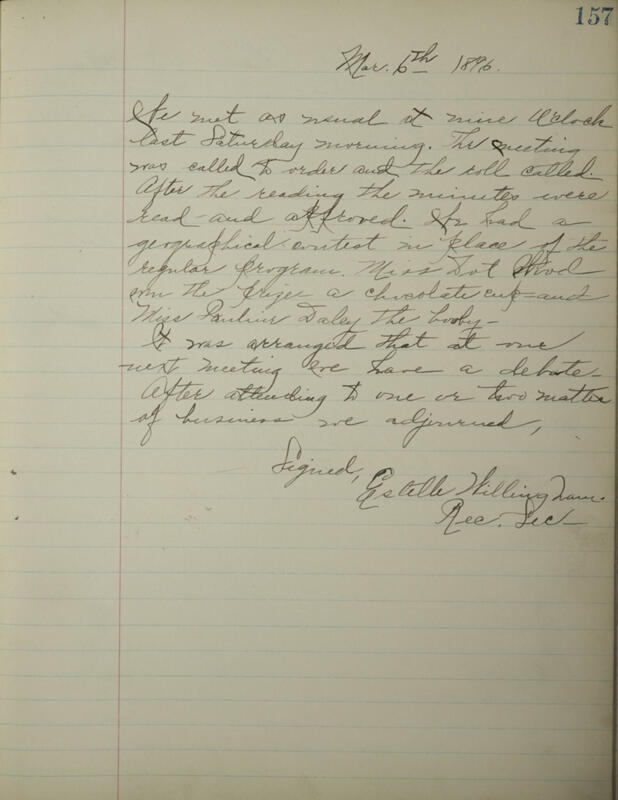 157
Mar. 6th 1896.
We met as usual at nine O'clock
last Saturday morning. The meeting
was called to order and the roll called.
After the reading the minutes were
read and approved. We had a
geographical contest in place of the
regular program. Miss Dot
won the prize a chocolate cup and
Miss Pauline Daley the booby-
It was arranged that at our
next meeting we have a debate-
After attending to one or two matter
of business we adjourned,
Signed,
Estelle Willingham.
Rec. Sec-